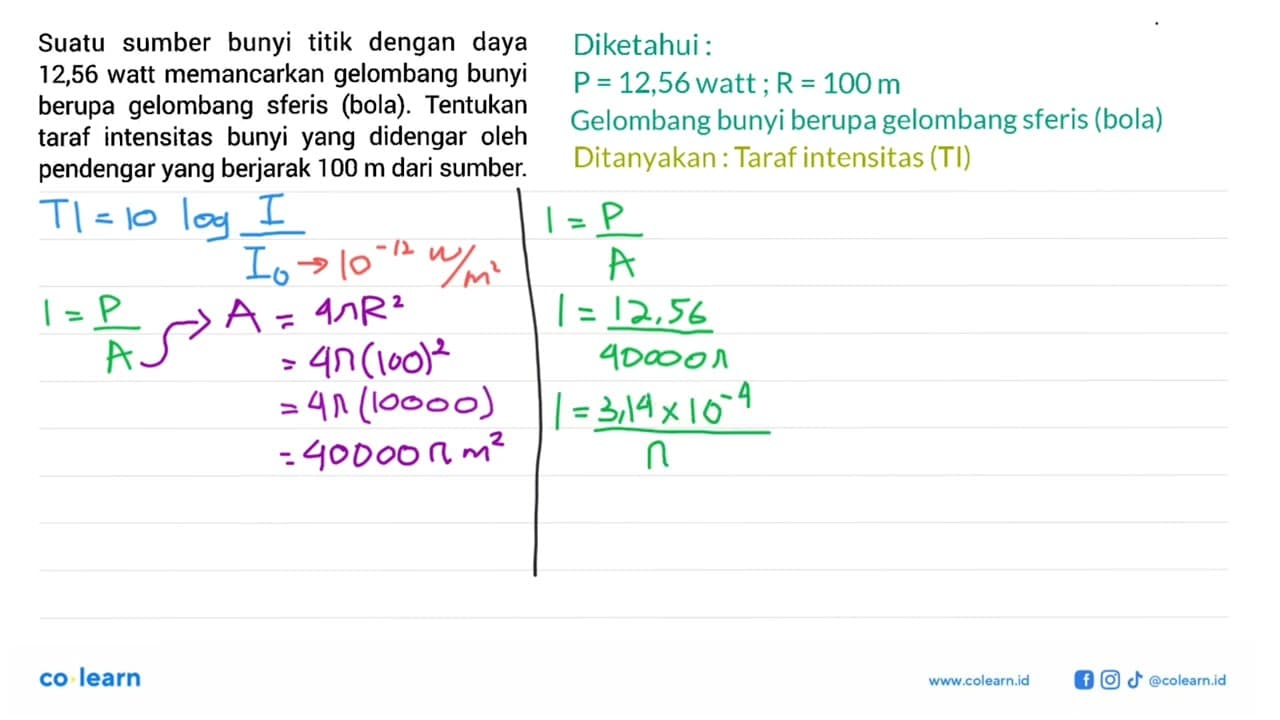 Suatu sumber bunyi titik dengan daya
12,56 watt memancarkan gelombang bunyi
berupa gelombang sferis (bola). Tentukan
taraf intensitas bunyi yang didengar oleh
pendengar yang berjarak 100 m dari sumber.
Diketahui :
P = 12,56 watt ; R = 100 m
Gelombang bunyi berupa gelombang sferis (bola)
Ditanyakan : Taraf intensitas (TI)
TI = 10 log I
I₀ → 10⁻¹² W/m²
I = P
A → A = 4πR²
= 4π(100)²
= 4π(10000)
= 40000π m²
I = P
A
I = 12,56
40000π
I = 3,14 x 10⁻⁴
π
co learn
www.colearn.id
@colearn.id